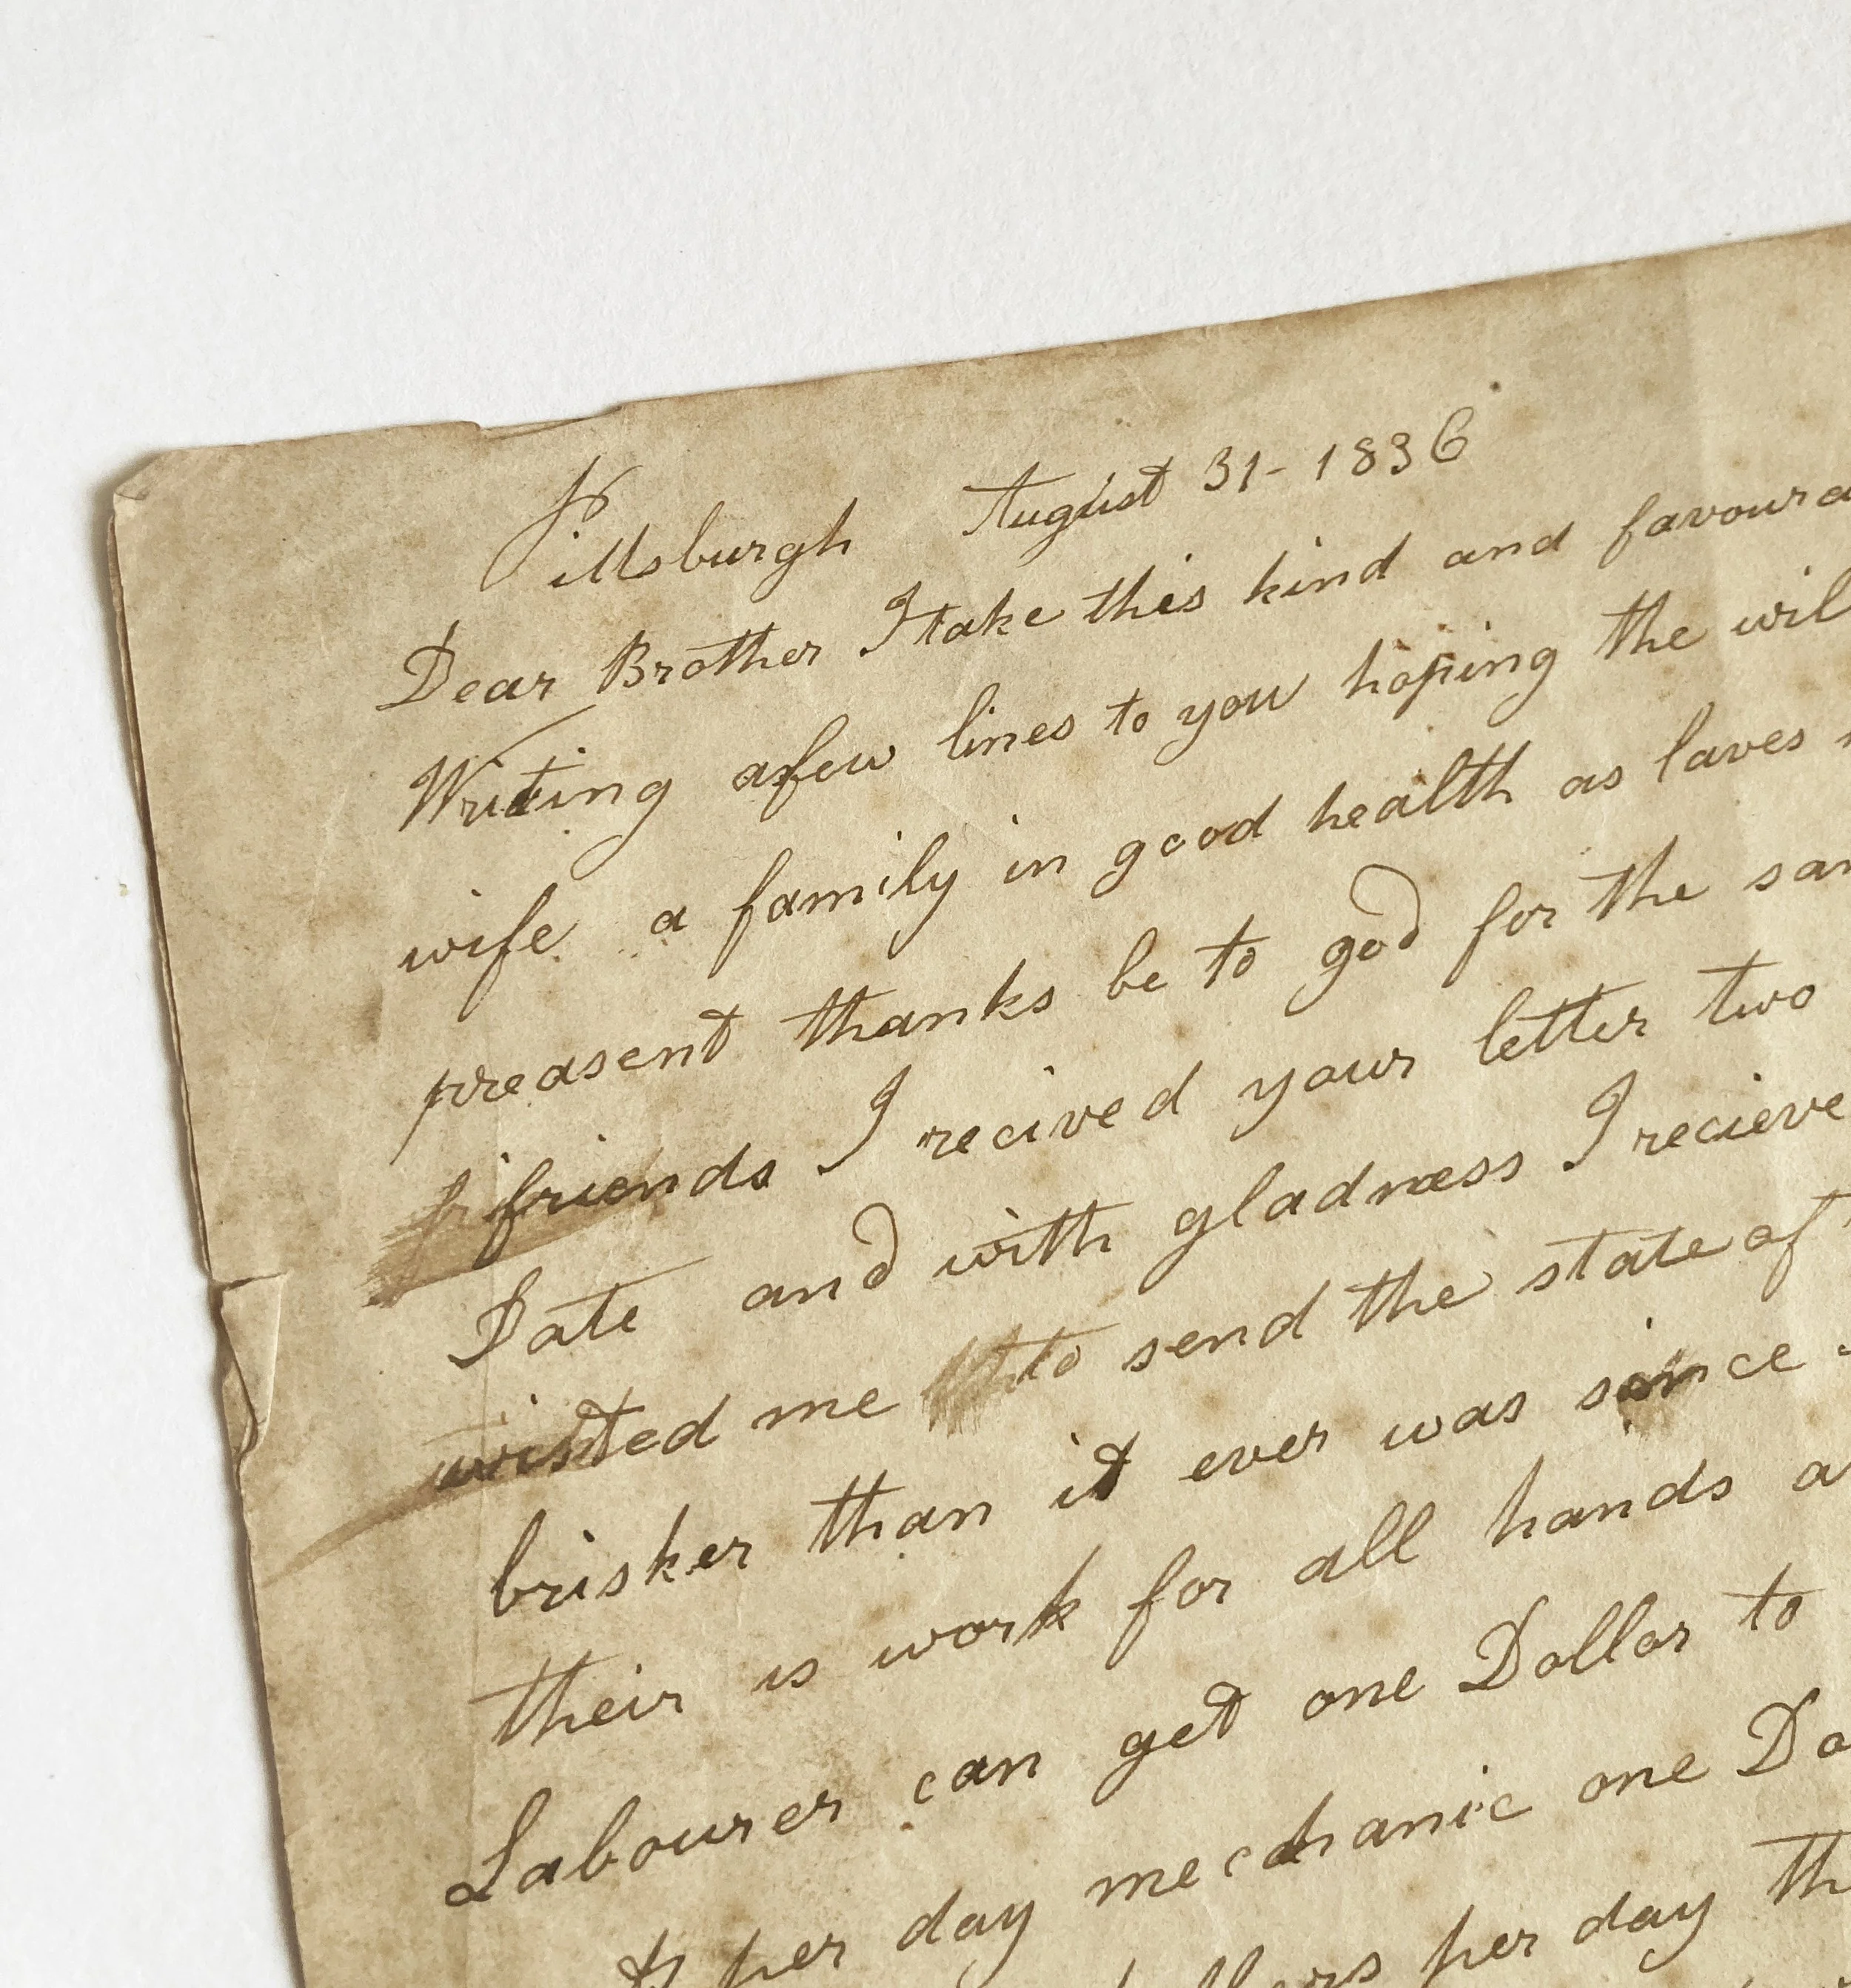 Pittsburgh August 31 - 1836
Dear Brother I take this kind and favoura
Writing afew lines to you hoping the wil
wife a family in good health as laves
preasent thanks be to god for the sa
friends I recived your letter two
Date and with gladness I recieve
wisted me to send the state of
brisker than it ever was since
their is work for all hands a
Labourer can get one Dollar to
per day mechanic one Do
per day th